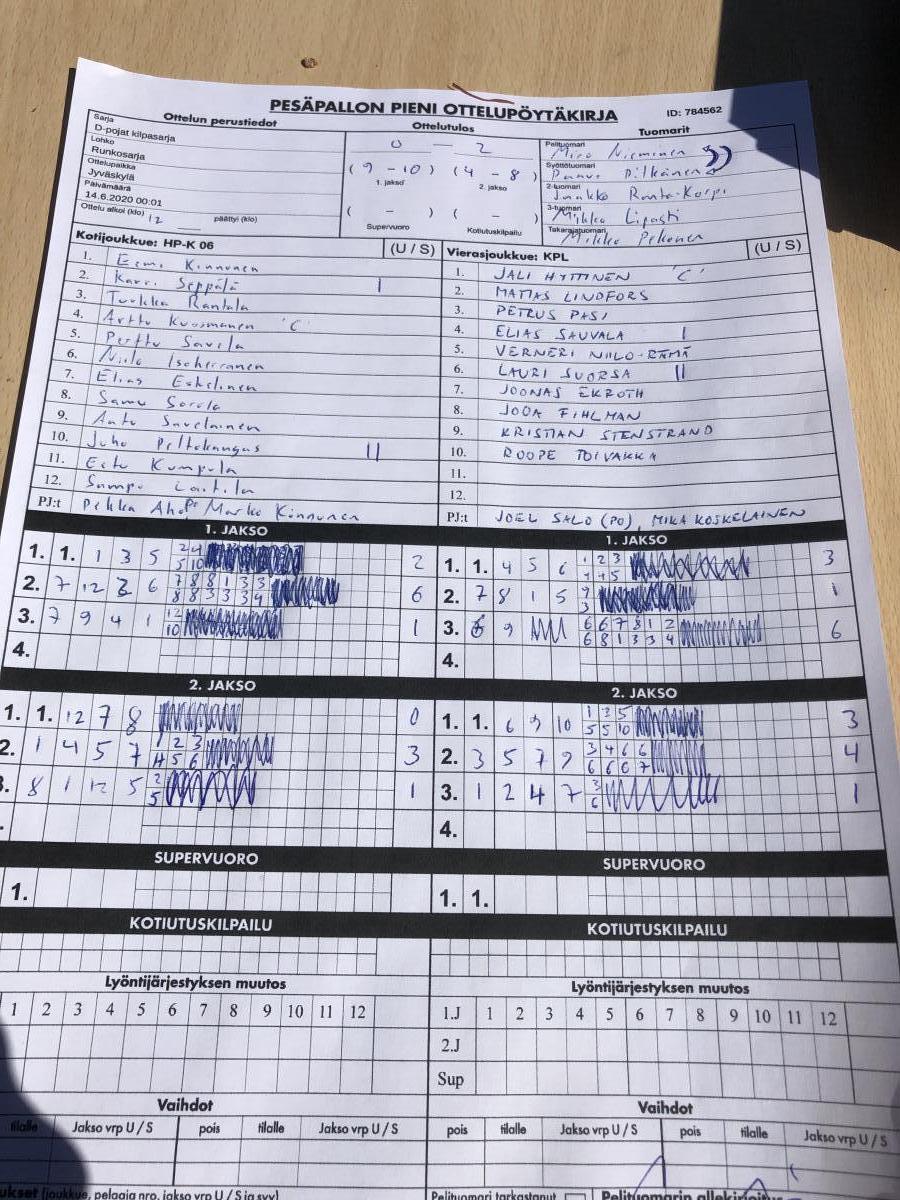 PESÄPALLON PIENI OTTELUPÖYTÄKIRJA ID: 784562
Ottelun perustiedot Ottelutulos Tuomarit
Sarja
D-pojat kilpasarja
Lohko
Runkosarja
Ottelupaikka
Jyväskylä
Päivämäärä
14.6.2020 00:01
Ottelu alkoi (klo) 12 päättyi (klo)
0 — 2
(9 - 10) (4 - 8)
1. jakso 2. jakso
( - ) ( - )
Supervuoro Kotiutuskilpailu
Pelituomari
Miro Nieminen
Syöttötuomari
Paavo Pilkänen
2-tuomari
Jaakko Ranta-Korpi
3-tuomari
Mikko Lipasti
Takarajatuomari
Mikko Pekonen
Kotijoukkue: HP-K 06 (U / S)
1. Eemi Kinnunen
2. Karri Seppälä I
3. Tuukka Rantala
4. Arttu Kuosmanen 'C'
5. Perttu Savela
6. Niilo
7. Elias Eskelinen
8. Samu Sorola
9. Antu Savolainen
10. Juho Peltokangas II
11. Eetu Kumpula
12. Sampo Laitila
PJ:t Pekka Aho Marko Kinnunen
Vierasjoukkue: KPL (U / S)
1. JALI HYTTINEN 'C'
2. MATIAS LINDFORS
3. PETRUS PASI
4. ELIAS SAUVALA I
5. VERNERI NIILO-RÄMÄ
6. LAURI SUORSA II
7. JOONAS EKROTH
8. JOOA FIHLMAN
9. KRISTIAN STENSTRAND
10. ROOPE TOIVAKKA
11.
12.
PJ:t JOEL SALO (PO), MIKA KOSKELAINEN
1. JAKSO 1. JAKSO
1. 1. 1 3 5 2 4 2
5 10
2. 7 12 2 6 7 8 8 1 3 3 6
8 8 3 3 3 4
3. 7 9 4 1 12 1
10
4.
1. 1. 4 5 6 1 2 3 3
4 4 5
2. 7 8 1 5 9 1
3
3. 6 9 6 6 7 8 1 2 6
6 8 1 3 3 4
4.
2. JAKSO 2. JAKSO
1. 1. 12 7 8 0
2. 1 4 5 7 1 2 3 3
4 5 6
8 1 12 5 2 1
5
1. 1. 6 9 10 1 3 5 3
5 5 10
2. 3 5 7 9 3 4 6 6 4
6 6 6 7
3. 1 2 4 7 3 1
6
4.
SUPERVUORO SUPERVUORO
1. 1. 1.
KOTIUTUSKILPAILU KOTIUTUSKILPAILU
Lyöntijärjestyksen muutos Lyöntijärjestyksen muutos
1 2 3 4 5 6 7 8 9 10 11 12 1.J 1 2 3 4 5 6 7 8 9 10 11 12
2.J
Sup
Vaihdot Vaihdot
tilalle Jakso vrp U / S pois tilalle Jakso vrp U / S pois tilalle Jakso vrp U / S pois tilalle Jakso vrp U / S
ukset (joukkue, pelaaja nro, jakso vrp U / S ja syy) Pelituomari tarkastanut Pelituomarin allekirjoitus